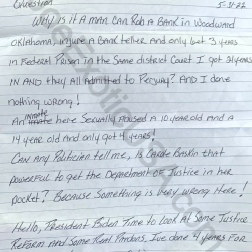 Question 5-11-22
Why is it A man can Rob A Bank in Woodward
Oklahoma, injure A Bank teller And only get 3 years
in Federal Prison in the Same district Court I got 21 years
IN AND they All Admitted to Perjury? AND I done
nothing wrong!
An inmate here Sexually Abused A 10 year old and A
14 year old And only got 4 years!
CAN Any Politician tell me, Is Carole Baskin that
powerful to get the Department of Justice in her
pocket? Because Something is Very wrong here!
Hello, President Biden Time to Look At Some Justice
Reform And Some Real Pardons, I've done 4 years For